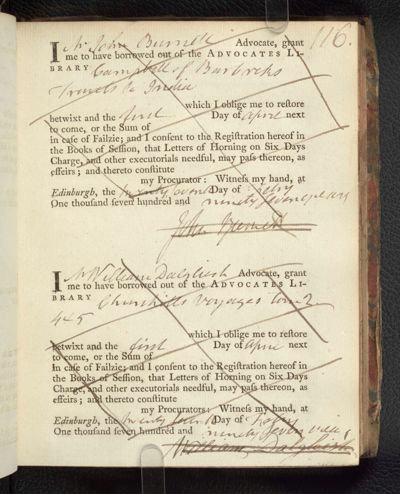 116.
I Mr John Burnett Advocate, grant
me to have borrowed out of the ADVOCATES LI-
BRARY Campbell of Barbrecks
Travels to India
which I oblige me to reſtore
betwixt and the first Day of April next
to come, or the Sum of
in caſe of Failzie; and I conſent to the Regiſtration hereof in
the Books of Seſſion, that Letters of Horning on Six Days
Charge, and other executorials needful, may paſs thereon, as
effeirs; and thereto conſtitute
my Procurator: Witneſs my hand, at
Edinburgh, the Day of Febry
One thouſand ſeven hundred and ninety seven years
John Burnett
I Mr William Dalgliesh Advocate, grant
me to have borrowed out of the ADVOCATES LI-
BRARY Churchills Voyages tom 2
4 & 5
which I oblige me to reſtore
betwixt and the first Day of April next
to come, or the Sum of
In caſe of Failzie; and I conſent to the Regiſtration hereof in
the Books of Seſſion, that Letters of Horning on Six Days
Charge, and other executorials needful, may paſs thereon, as
effeirs; and thereto conſtitute
my Procurators: Witneſs my hand, at
Edinburgh, the Day of Febry
One thouſand ſeven hundred and ninety seven
William Dalgliesh